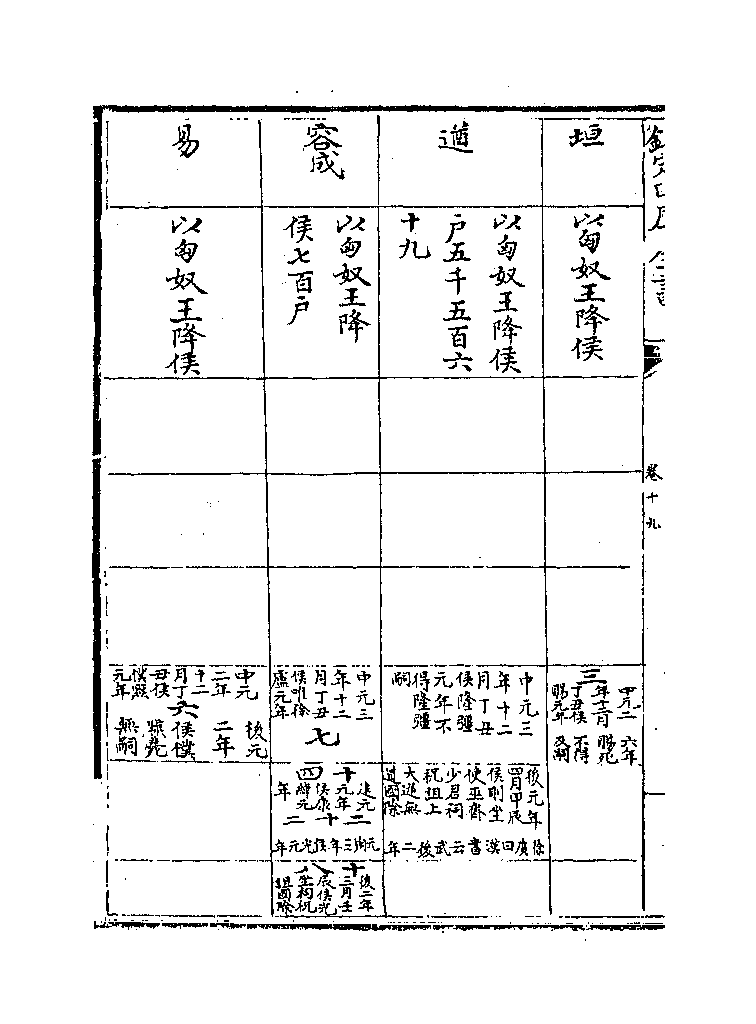 欽定四庫全書
卷十九
垣
以匈奴王降侯
三
中元二
年十二月
丁丑侯
賜元年
六年
賜死
不得
及嗣
遒
以匈奴王降侯
戶五千五百六
十九
中元三
年十二
月丁丑
侯隆彊
元年不
得隆彊
嗣
後元年
四月甲辰
侯則坐
使巫齊
少君祠
祝詛上
大逆無
道國除
徐廣曰漢書云武後二年
容成
以匈奴王降
侯七百戶
中元三
年十二
月丁丑
侯唯徐
盧元年
七
十四
建元
元年
侯康
綽元
年
二十二
元朔三年侯光元年
十八
後二年
三月壬
辰侯光
坐祠祝
詛國除
易
以匈奴王降侯
中元
二年
十二
月丁
丑侯
僕黥
元年
六
後元
二年
侯僕
黥薨
無嗣